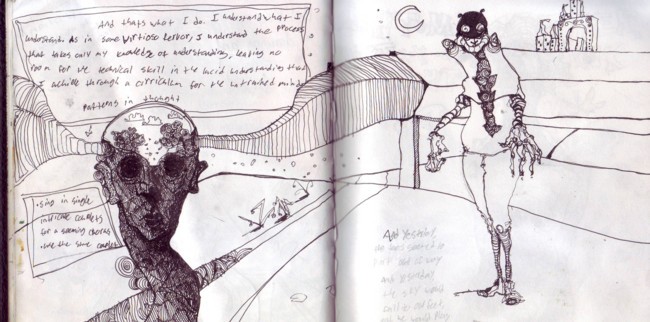 And thats what I do. I understand what I
understand. As in some virtioso fervor, I understand the process
that takes only my knowledge of understanding, leaving no
room for the technical skill in the lucid understandings that
I achieve through a curriculum for the untrained mind
Patterns in thought
·sing in single
intricate couplets
for a seeming chorus
·use the same couplet
And yesterday,
the
sky
and yesterday
the sky